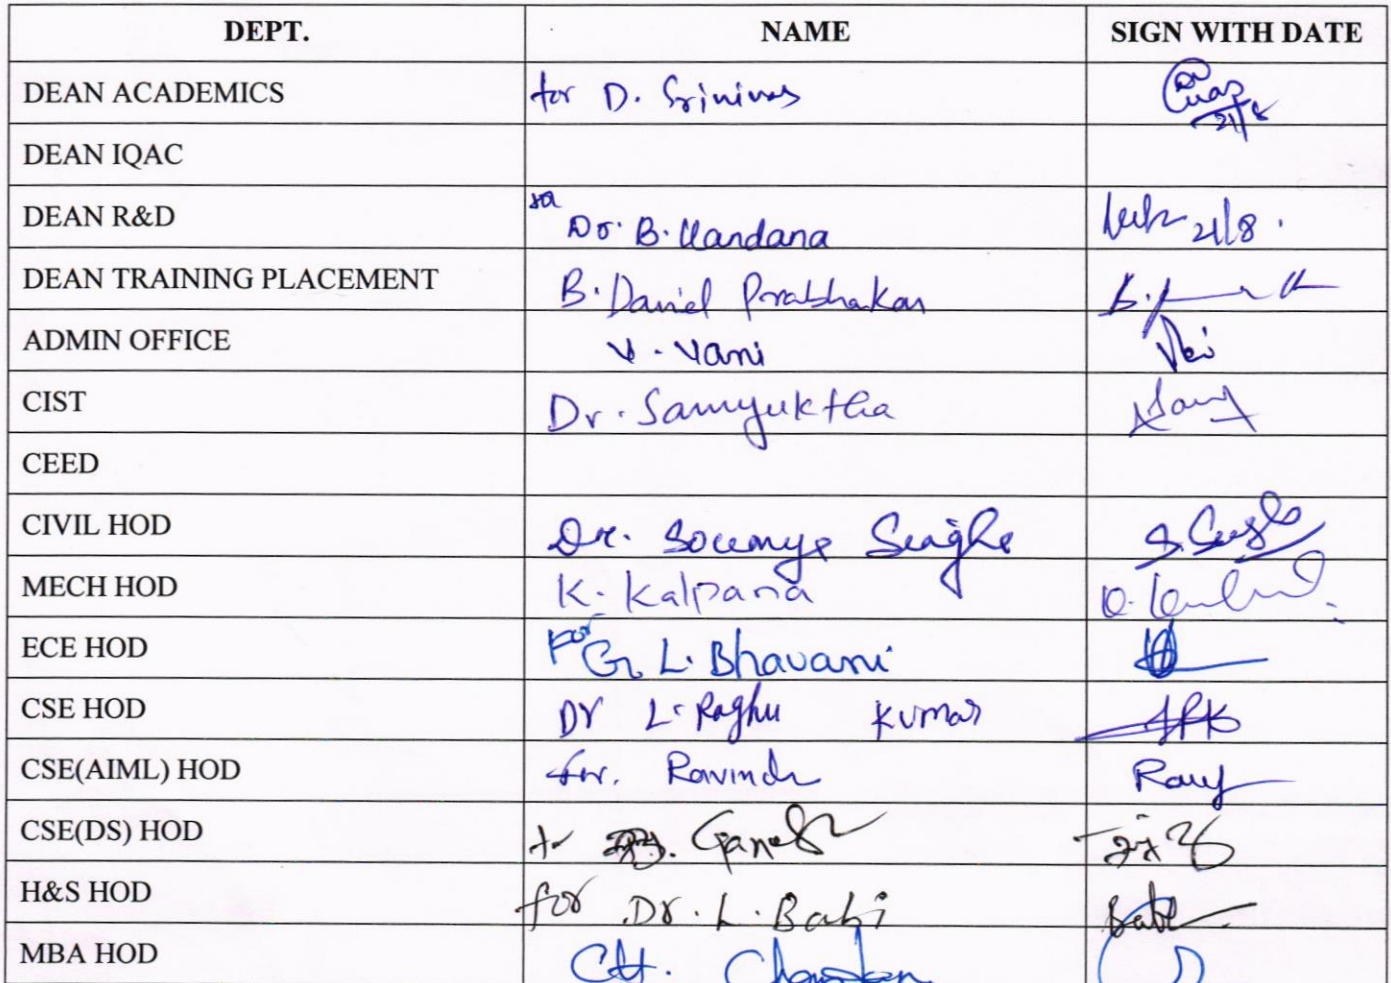 DEPT. NAME SIGN WITH DATE
DEAN ACADEMICS for D. Srinivas 21/8
DEAN IQAC
DEAN R&D Dr. B. Vandana 21/8.
DEAN TRAINING PLACEMENT B. Daniel Prabhakar
ADMIN OFFICE V. Vani
CIST Dr. Samyuktha
CEED
CIVIL HOD Dr. Soumya
MECH HOD K. Kalpana
ECE HOD For G. L. Bhavani
CSE HOD Dr L. Raghu Kumar
CSE(AIML) HOD for. Ravinder
CSE(DS) HOD Ganesh
H&S HOD for Dr. L. Babi
MBA HOD CH.